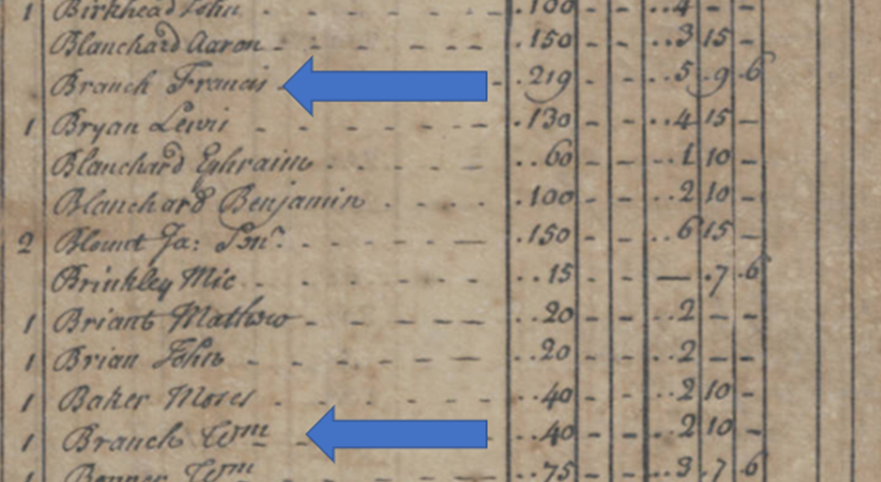 1 Birkhead John - - - - .100 - - ..4 - -
Blanchard Aaron - - - - - .150 - - ..3 15 -
Branch Francis - .219 - - ..5 .9 .6
1 Bryan Lewis - - - - - .130 - - ..4 15 -
Blanchard Ephraim - - - - - ..60 - - ..1 10 -
Blanchard Benjamin - - - - .100 - - ..2 10 -
2 Blount Ja: Senr. - - - - - .150 - - ..6 15 -
Brinkley Mic - - - - - ..15 - - — .7 .6
1 Briant Mathew - - - - - ..20 - - ..2 - -
1 Brian John - - - - - ..20 - - ..2 - -
1 Baker Moses - - - - - ..40 - - ..2 10 -
1 Branch Wm - ..40 - - ..2 10 -
1 Bonner Wm - - - - ..75 - - ..3 .7 .6